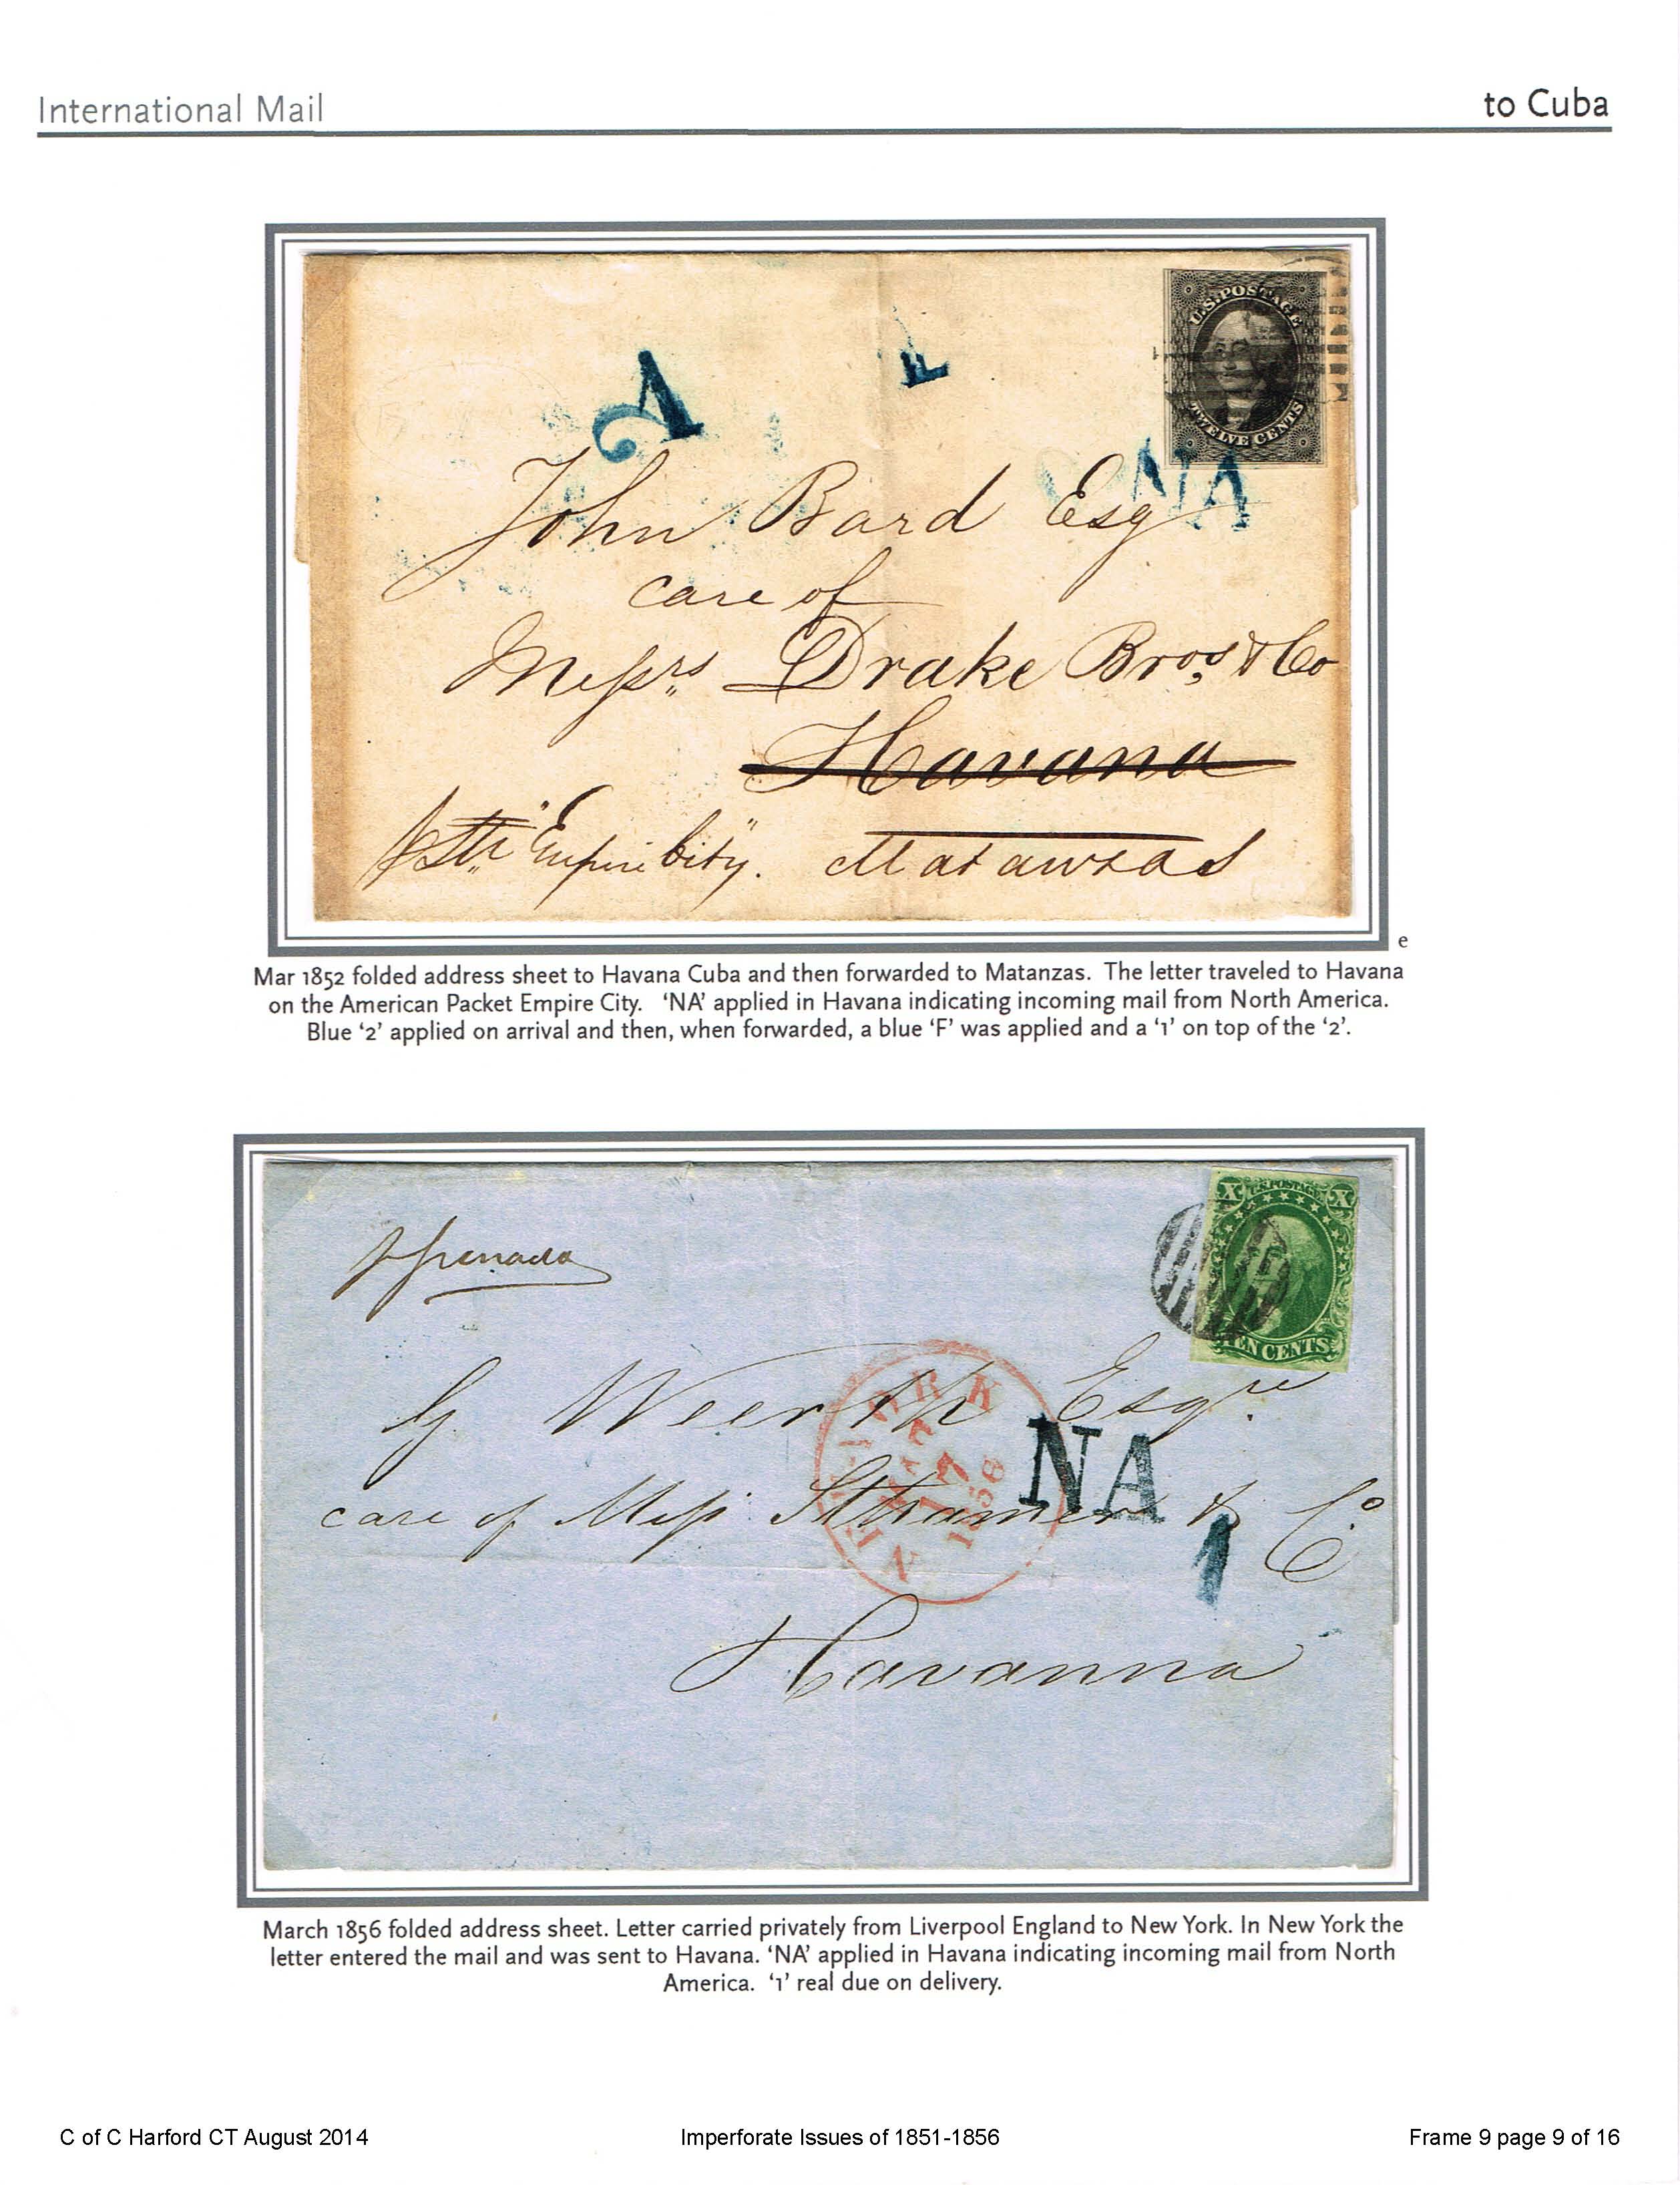 International Mail
to Cuba
U.S. POSTAGE
TWELVE CENTS
2
1
F
NA
John Bard Esq
care of
Messrs Drake Bros. & Co
Havana
p Str "Empire City". Matanzas
e
Mar 1852 folded address sheet to Havana Cuba and then forwarded to Matanzas. The letter traveled to Havana
on the American Packet Empire City. ‘NA’ applied in Havana indicating incoming mail from North America.
Blue ‘2’ applied on arrival and then, when forwarded, a blue ‘F’ was applied and a ‘1’ on top of the ‘2’.
X U.S. POSTAGE X
TEN CENTS
G. Weerth Esqre
NEW-YORK
MAR
17
1856
NA
care of Mess: & Co
1
Havanna
March 1856 folded address sheet. Letter carried privately from Liverpool England to New York. In New York the
letter entered the mail and was sent to Havana. ‘NA’ applied in Havana indicating incoming mail from North
America. ‘1’ real due on delivery.
C of C Harford CT August 2014
Imperforate Issues of 1851-1856
Frame 9 page 9 of 16